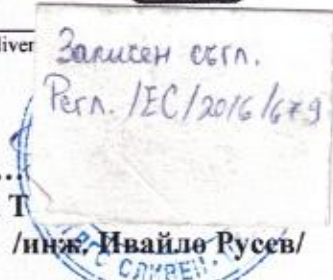 liver
Записен съгл.
Регл. /ЕС/2016/679
Т
/инж. Ивайло Русев/
СЛИВЕН